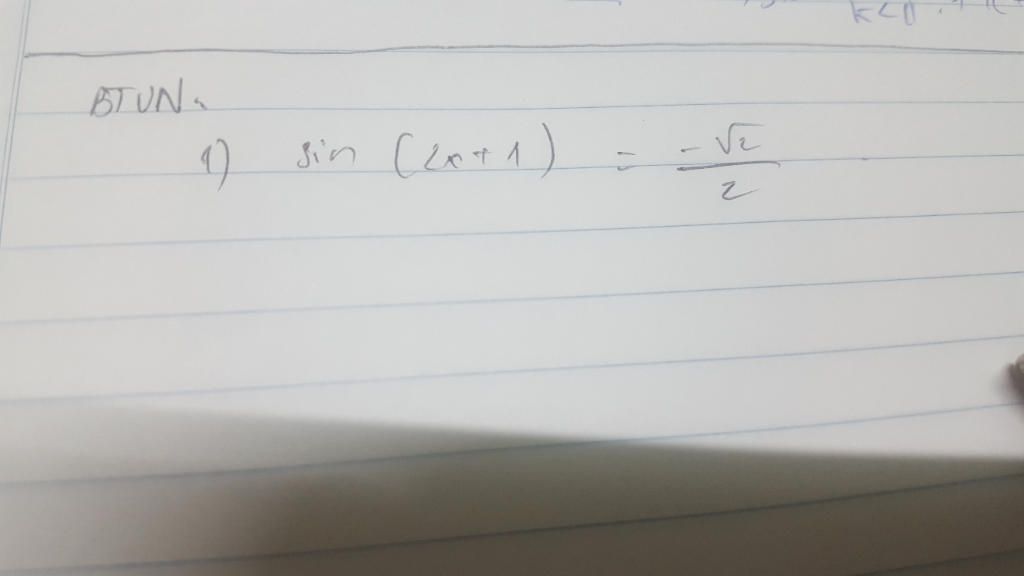 k<0
BTVN.
1) sin (2x+1) = -√2/2